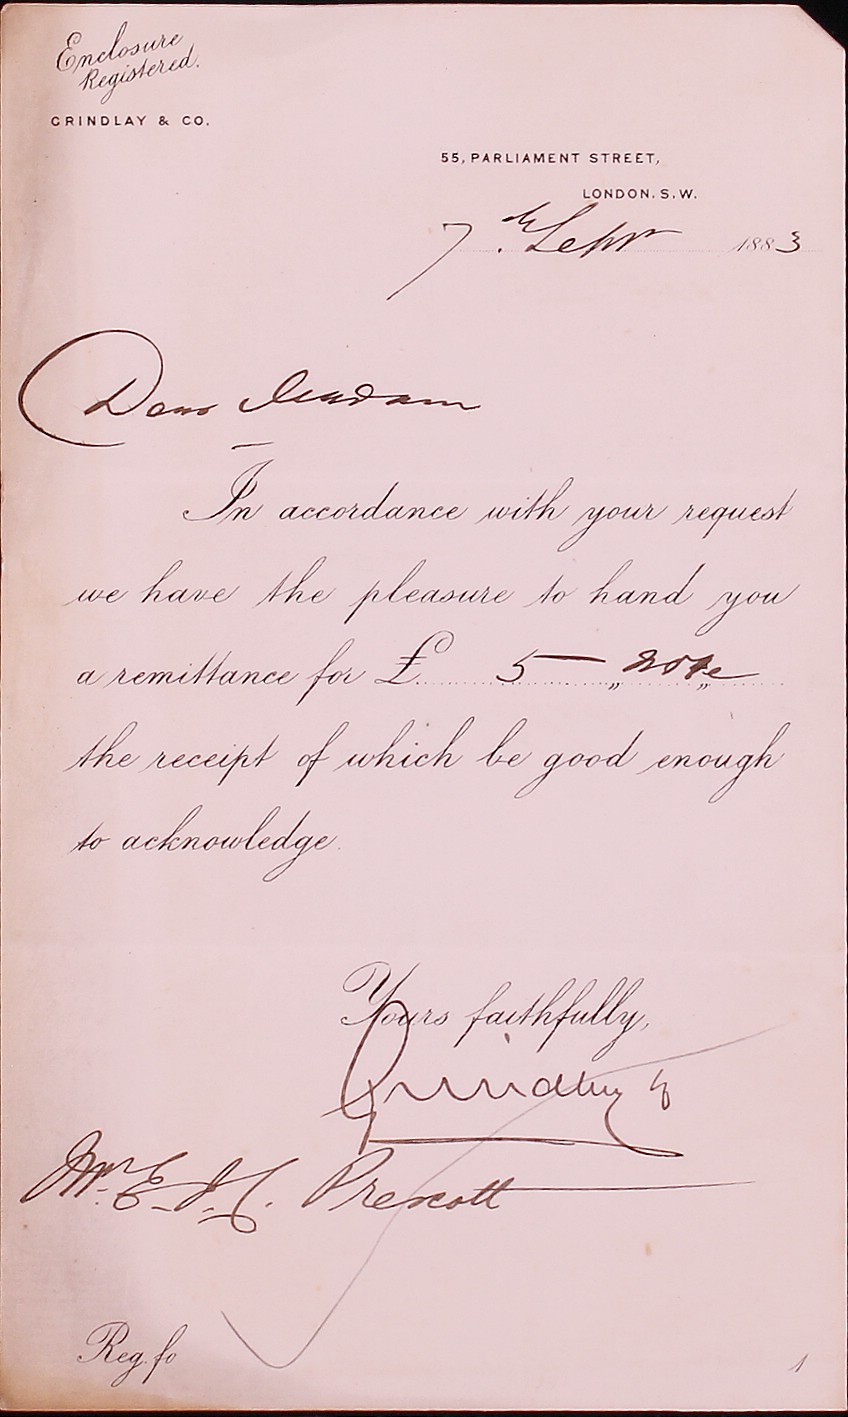 Enclosure
Registered.
GRINDLAY & CO.
55, PARLIAMENT STREET,
LONDON. S.W.
7th Sepr 1883
Dear Madam
In accordance with your request
we have the pleasure to hand you
a remittance for £ 5 — „ note „
the receipt of which be good enough
to acknowledge.
Yours faithfully,
Grindlay & Co
E. J. C. Prescott
Reg. fo
1